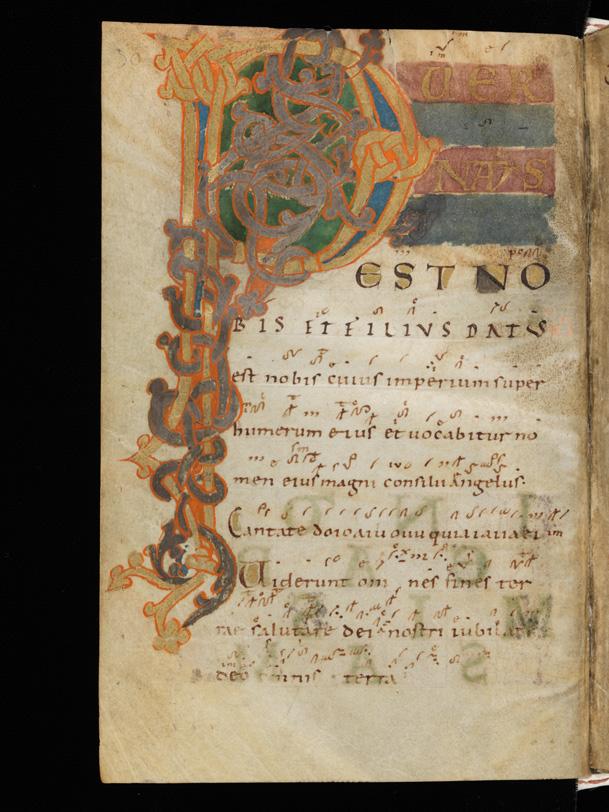 P UER
NATUS
EST NO
BIS ET FILIUS DATUS
est nobis cuius imperium super
humerum eius et uocabitur no
men eius magni consilii angelus.
Cantate
Uiderunt om nes fines ter
rae salutare dei nostri iubilate
deo terra